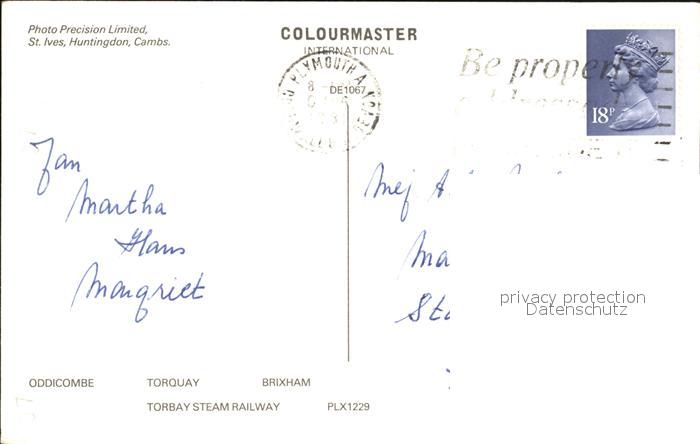 Photo Precision Limited,
St. Ives, Huntingdon, Cambs.
COLOURMASTER
INTERNATIONAL
PLYMOUTH
DE1067
Be proper
18P
Jan
Martha
Hans
Margriet
Mej A.
Ma
privacy protection
Datenschutz
ODDICOMBE TORQUAY BRIXHAM
TORBAY STEAM RAILWAY PLX1229